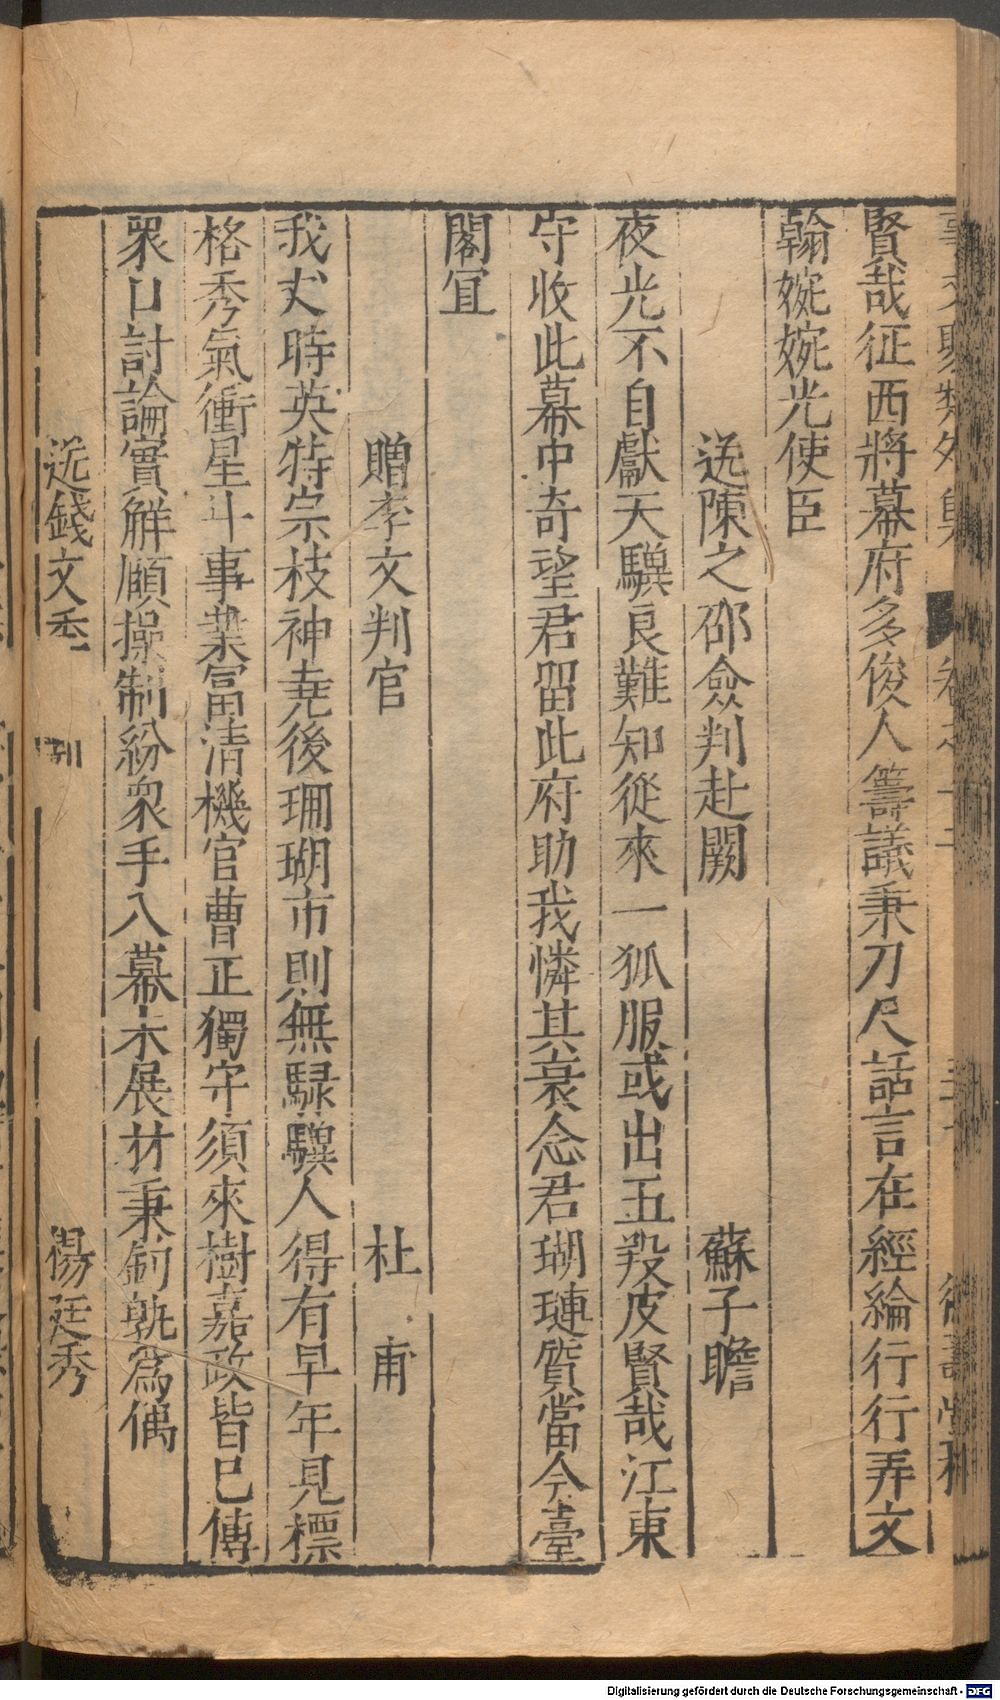 賢哉征西將幕府多俊人籌議秉刀尺話言在經綸行行弄文
翰婉婉光使臣
送陳之邵僉判赴闕 蘇子瞻
夜光不自獻天驥良難知從來一狐服或出五羖皮賢哉江東
守收此幕中奇望君留此府助我憐其衰念君瑚璉質當今臺
閣宜
贈李文判官 杜甫
我丈時英特宗枝神堯後珊瑚市則無騄驥人得有早年見標
格秀氣衝星斗事業富清機官曹正獨守須來樹嘉政皆已傳
衆口討論實解頤操制紛衆手入幕未展材秉鈞孰爲偶
送錢文季 楊廷秀
Digitalisierung gefördert durch die Deutsche Forschungsgemeinschaft - DFG